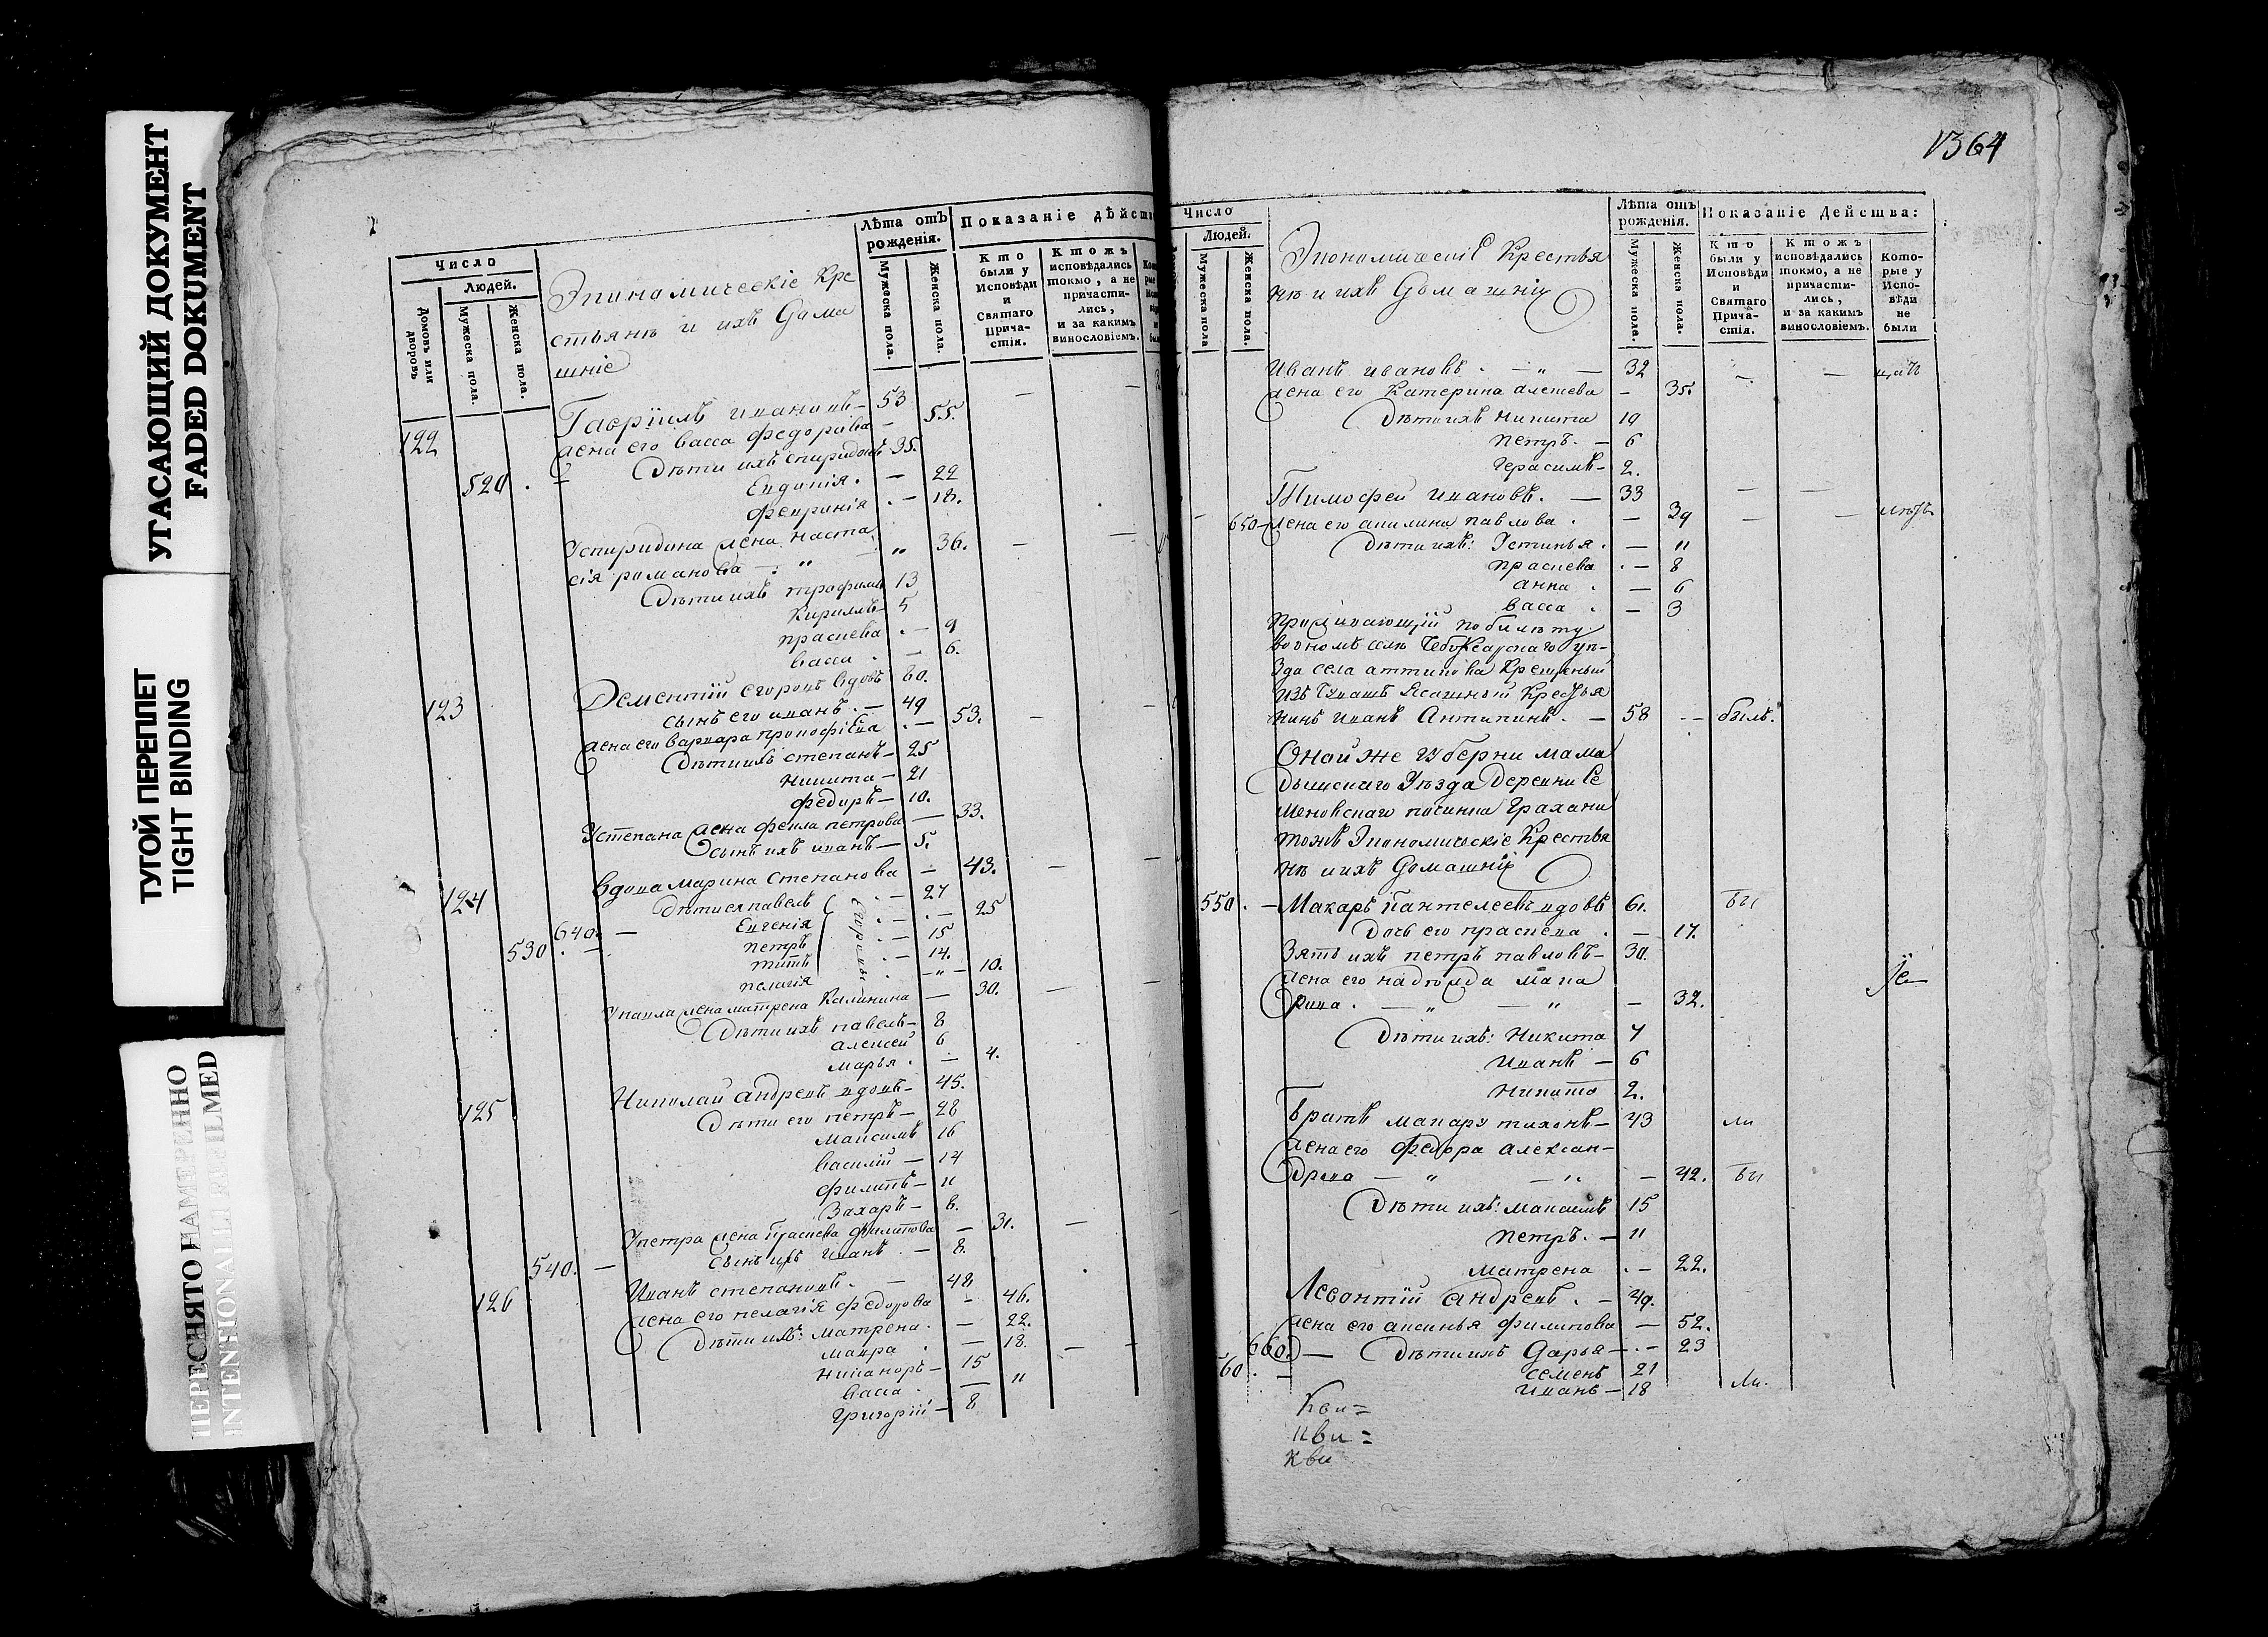 УГАСАЮЩИЙ ДОКУМЕНТ
FADED DOKUMENT
ТУГОЙ ПЕРЕПЛЕТ
TIGHT BINDING
ПЕРЕСНЯТО НАМЕРЕННО
INTENTIONALLI REFILMED
Число
Людей.
Домовъ или дворовъ
Мужеска пола.
Женска пола.
Экономическіе Кре
стьянѣ и ихъ Дома
шніе
Лѣта отъ рожденія.
Мужеска пола.
Женска пола.
Показаніе дѣйств
Кто были у Исповѣди и Святаго Причастія.
Ктожъ исповѣдались токмо, а не причастились, и за какимъ винословіемъ.
122 Гаврiилъ ивановъ - 53
жена его васса федорова - 55.
520 Дѣти ихъ спиридонъ 35.
Евдокія. - 22
феврония - 18.
Успиридона жена наста
сія романова - 36.
Дѣти ихъ трофимъ 13
Кириллъ - 5
праскева - 9
васса - 6.
123 Дементій егоровъ вдовъ 80.
сынъ его иванъ - 49
жена его варвара прокофіева - 53.
Дѣти ихъ степанъ - 25
никита - 21
федоръ - 10.
Устепана жена фекла петрова - 33.
сынъ ихъ иванъ - 5.
124 вдова марина степанова - 43.
Дѣти ея павелъ - 27
640. Евгенія - 25
530 петръ - 15
титъ - 14.
пелагія - 10.
Упавла жена матрена Калинина - 30.
Дѣти ихъ павелъ - 8
алексей 6
марья - 4.
125 Николай андреевъ вдовъ - 45.
Дѣти его петръ - 28
максимъ 16
василій - 14
филипъ - 11
Захаръ - 6.
Упетра жена праскева филипова - 31.
540. Сынъ ихъ иванъ - 8.
126 Иванъ степановъ. - 48
жена его пелагія федорова - 46.
Дѣти ихъ: матрена. - 22.
мавра - 18.
никаноръ - 15
васса - 11
григорій - 8
1364
Число
Людей.
Мужеска пола
Женска пола.
Экономическіе Крестья
нѣ и ихъ Домашніи
Лѣта отъ рожденія.
Мужеска пола.
Женска пола.
Показаніе Действа:
Кто были у Исповѣди и Святаго Причастія.
Ктожъ исповѣдались токмо, а не причастились, и за какимъ винословіемъ.
Которые у Исповѣди не были
Иванъ ивановъ. - 32
жена его Катерина алексева - 35.
Дѣти ихъ никита 19
петръ. - 6
герасимъ - 2.
Тимофеи ивановъ. - 33
650 - жена его акилина павлова. - 39
Дѣти ихъ: Устинья. - 11
праскева - 8
анна - 6
васса - 3
Проживающій по билету
воономъ селе Чебоксарскаго уѣ-
зда села аттикова Крещеный
изъ Чувашъ Ясашный Крестья
нинъ иванъ Антипинъ. - 58 - былъ.
Оной же Губерни Мама
дышскаго Уѣзда Деревни Се
меновскаго починка Грахани
тожъ Экономическіе Крестья
нѣ и ихъ Домашніи
550. - Макаръ Пантелеевъ вдовъ 61.
Дочь его праскева - 17.
Зять ихъ петръ павловъ - 30.
жена его надежда мака
рова. - 32.
Дѣти ихъ: Никита 7
иванъ - 6
никита 2.
Братъ макару тихонъ - 43
жена его Федора алексан-
древа - 42.
Дѣти ихъ: максимъ 15
петръ. - 11
матрена - 22.
Левонтій андреевъ. - 49.
жена его аксинья филипова - 52.
660. - Дѣти ихъ Дарья - 23
60. - семенъ 21
иванъ - 18